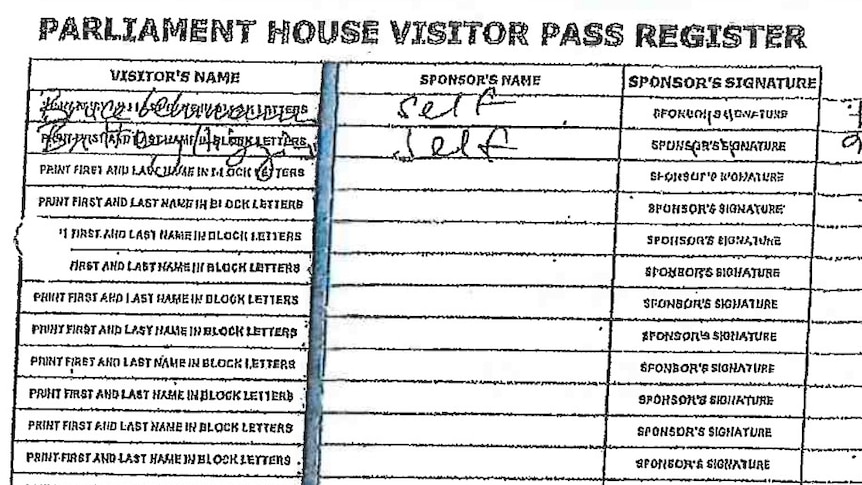 PARLIAMENT HOUSE VISITOR PASS REGISTER
VISITOR'S NAME SPONSOR'S NAME SPONSOR'S SIGNATURE
Bruce self SPONSOR'S SIGNATURE
PRINT FIRST AND LAST NAME IN BLOCK LETTERS self SPONSOR'S SIGNATURE
PRINT FIRST AND LAST NAME IN BLOCK LETTERS SPONSOR'S SIGNATURE
PRINT FIRST AND LAST NAME IN BLOCK LETTERS SPONSOR'S SIGNATURE
FIRST AND LAST NAME IN BLOCK LETTERS SPONSOR'S SIGNATURE
FIRST AND LAST NAME IN BLOCK LETTERS SPONSOR'S SIGNATURE
PRINT FIRST AND LAST NAME IN BLOCK LETTERS SPONSOR'S SIGNATURE
PRINT FIRST AND LAST NAME IN BLOCK LETTERS SPONSOR'S SIGNATURE
PRINT FIRST AND LAST NAME IN BLOCK LETTERS SPONSOR'S SIGNATURE
PRINT FIRST AND LAST NAME IN BLOCK LETTERS SPONSOR'S SIGNATURE
PRINT FIRST AND LAST NAME IN BLOCK LETTERS SPONSOR'S SIGNATURE
PRINT FIRST AND LAST NAME IN BLOCK LETTERS SPONSOR'S SIGNATURE